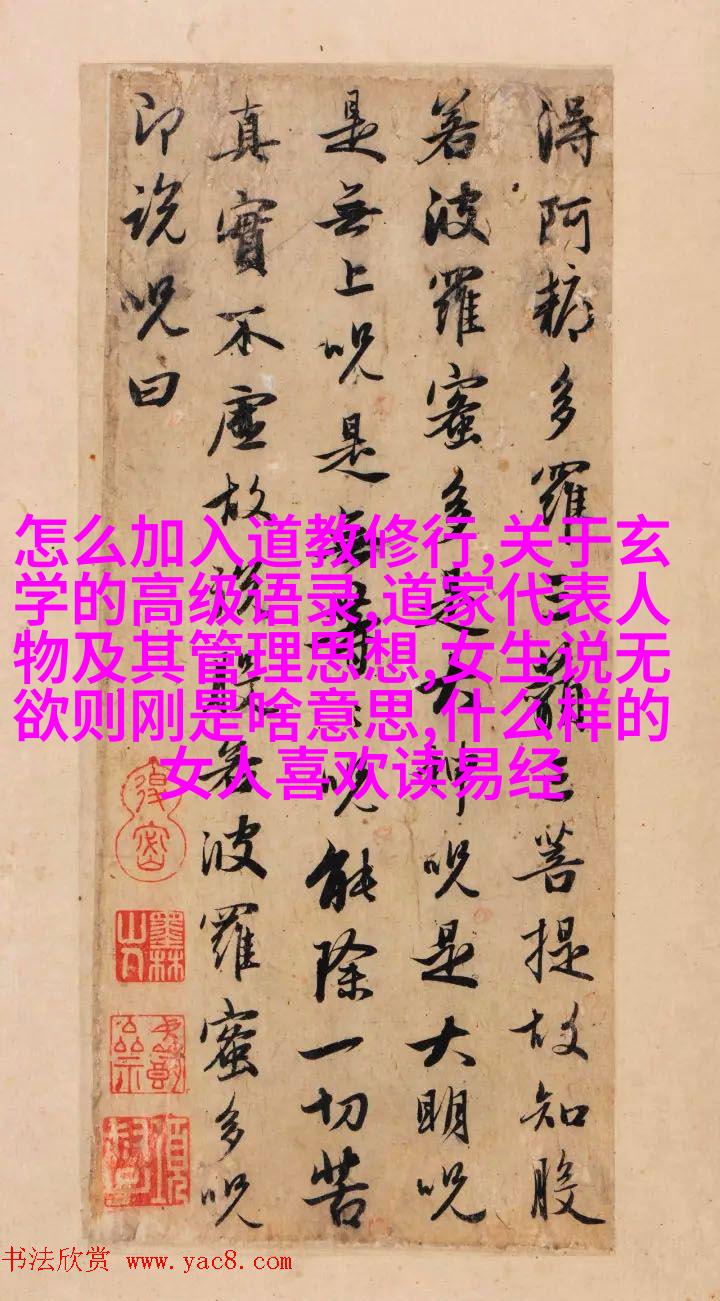 得阿耨多羅三藐三菩提故知般
若波羅蜜多是大神呪是大明呪
是無上呪是無等等呪能除一切苦
真實不虛故說般若波羅蜜多呪
即說呪曰
怎么加入道教修行,关于玄
学的高级语录,道家代表人
物及其管理思想,女生说无
欲则刚是啥意思,什么样的
女人喜欢读易经
墨林山人
书法欣赏 www.yac8.com